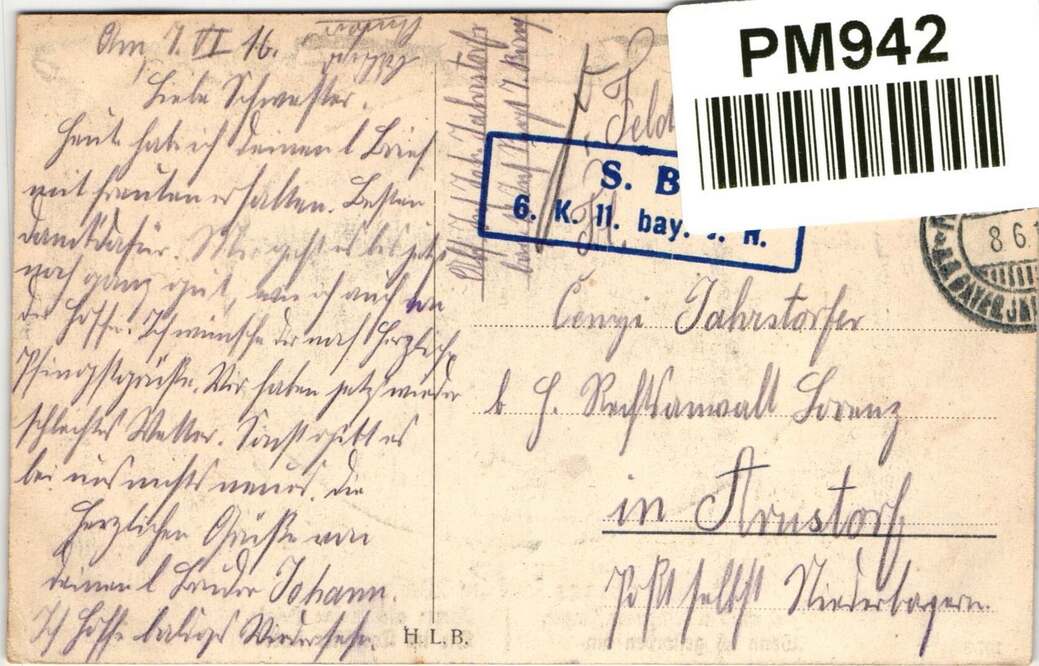 Am 7. VI 16.
Liebe Schwester.
Heute habe ich deinen l Brief
mit Freuten erhalten. Besten
Dank dafür. Mir geht es bis jetzt
noch ganz gut, wie ich auch von
dir hoffe. Ich wünsche dir noch herzlich
Pfingstgrüße. Wir haben jetz wieder
schlechtes Wetter. Sonst gibt es
bei uns nichts neues. Die
herzlichen Grüße von
deinen l Bruder Johann.
Ich hoffe baldigs Wiedersehn.
H. L. B.
Joh. Jahrstorfer
Feld
S. B
6. K. 11. bay. J. R.
PM942
8 6 1
Cenzi Jahrstorfer
b H. Rechtsanwalt Lorenz
in Arnstorf
Post selbst Niederbayern.